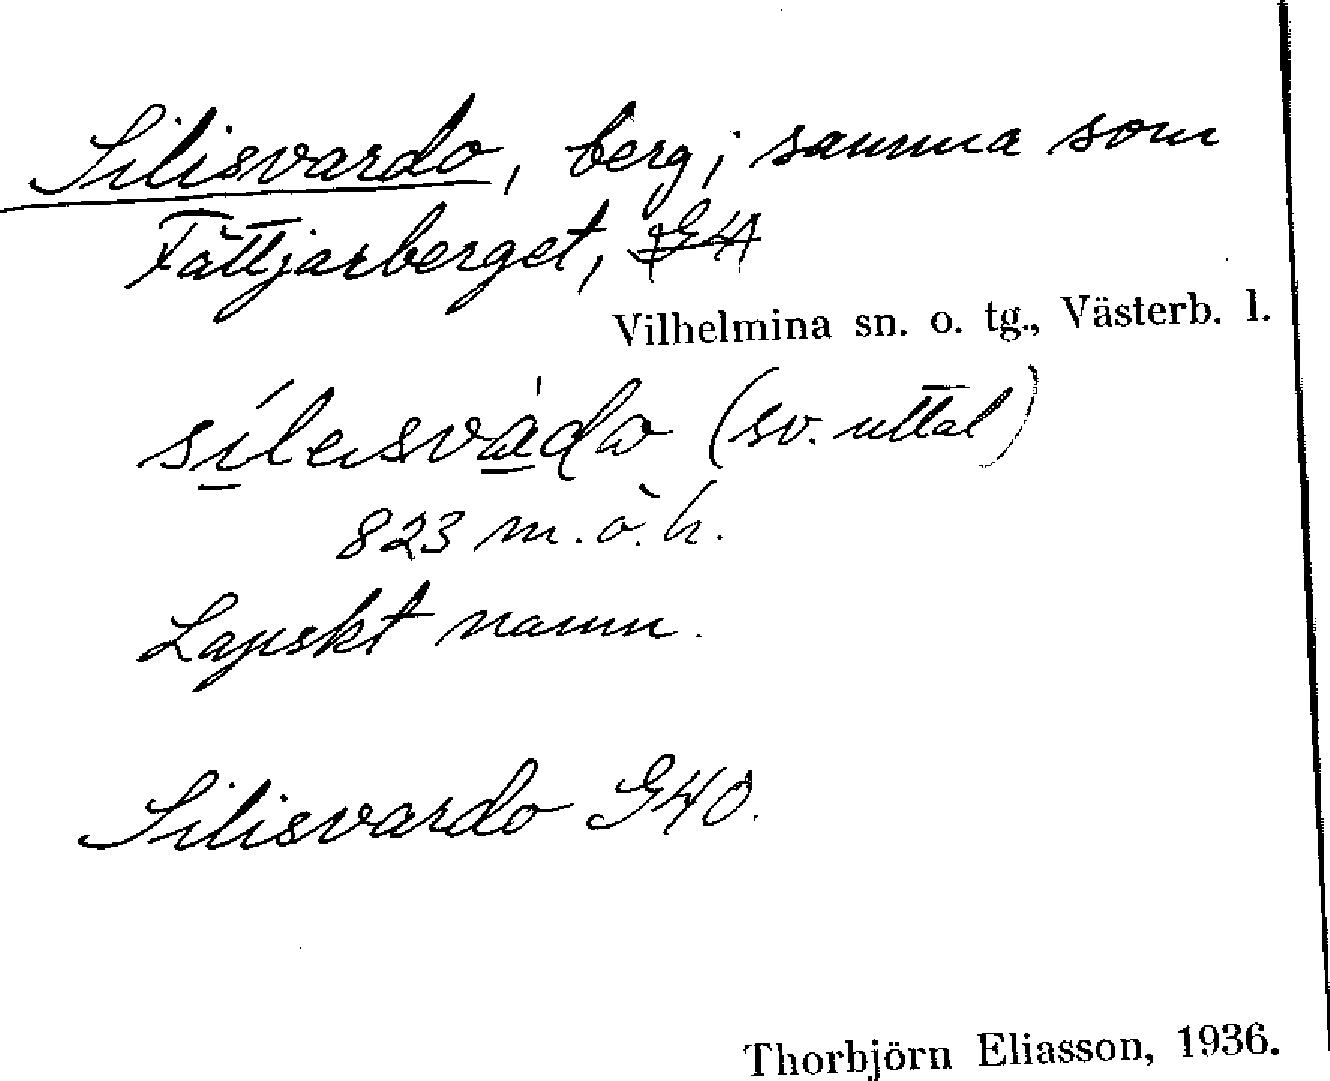 Silisvardo, berg; samma som
Fättjarberget,
Vilhelmina sn. o. tg., Västerb. l.
(sv. uttal)
823 m. ö. h.
Lapskt namn.
Silisvardo G40.
Thorbjörn Eliasson, 1936.